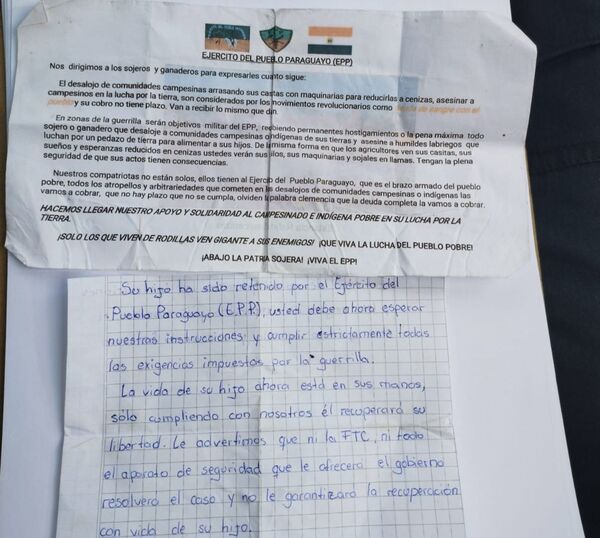 EJERCITO DEL PUEBLO PARAGUAYO (EPP)
Nos dirigimos a los sojeros y ganaderos para expresarles cuanto sigue:
El desalojo de comunidades campesinas arrasando sus castas con maquinarias para reducirlas a cenizas, asesinar a
campesinos en la lucha por la tierra, son considerados por los movimientos revolucionarios como deuda de sangre con el
pueblo y su cobro no tiene plazo. Van a recibir lo mismo que din.
En zonas de la guerrilla serán objetivos militar del EPP, recibiendo permanentes hostigamientos o la pena máxima todo
sojero o ganadero que desaloje a comunidades campesinas o indígenas de sus tierras y asesine a humildes labriegos que
luchan por un pedazo de tierra para alimentar a sus hijos. De la misma forma en que los agricultores ven sus casitas, sus
sueños y esperanzas reducidos en cenizas ustedes verán sus silos, sus maquinarias y sojales en llamas. Tengan la plena
seguridad de que sus actos tienen consecuencias.
Nuestros compatriotas no están solos, ellos tienen al Ejercito del Pueblo Paraguayo, que es el brazo armado del pueblo
pobre, todos los atropellos y arbitrariedades que cometen en las desalojos de comunidades campesinas o indígenas las
vamos a cobrar, que no hay plazo que no se cumpla, olviden la palabra clemencia que la deuda completa la vamos a cobrar.
HACEMOS LLEGAR NUESTRO APOYO Y SOLIDARIDAD AL CAMPESINADO E INDÍGENA POBRE EN SU LUCHA POR LA
TIERRA.
¡SOLO LOS QUE VIVEN DE RODILLAS VEN GIGANTE A SUS ENEMIGOS! ¡QUE VIVA LA LUCHA DEL PUEBLO POBRE!
¡ABAJO LA PATRIA SOJERA! ¡VIVA EL EPP!
Su hijo ha sido retenido por el Ejército del
Pueblo Paraguayo (E.P.P), usted debe ahora esperar
nuestras instrucciones y cumplir estrictamente todas
las exigencias impuestas por la guerrilla.
La vida de su hijo ahora está en sus manos,
sólo cumpliendo con nosotros él recuperará su
libertad. Le advertimos que ni la FTC, ni todo
el aparato de seguridad que le ofrecerá el gobierno
resolverá el caso y no le garantizará la recuperación
con vida de su hijo.